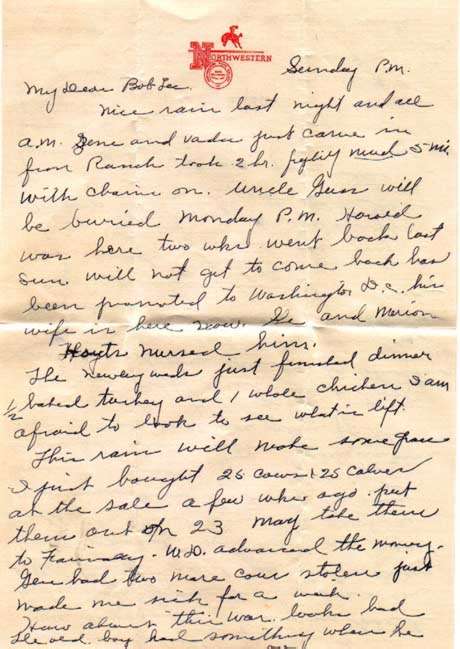 NORTHWESTERN
Sunday P.M.
My Dear Bob Lee
Nice rain last night and all
a.m. Gene and Vada just came in
from Ranch took 2 hr. mud 5 mi.
with chains on. Uncle Guss will
be buried Monday P.M. Harold
was here two wks. went back last
Sun. will not get to come back has
been promoted to Washington D.C. his
wife is here now. He and Marion
Hoyts nursed him.
The newly weds just finished dinner
1/2 baked turkey and 1 whole chicken I am
afraid to look to see what is left.
This rain will make some grass
I just bought 25 cows & 25 calves
at the sale a few wks ago. put
them out on 23 may take them
to . W.D. advanced the money.
Gene had two more cows stolen just
made me sick for a week.
How about this war. looks bad
old boy had something when he